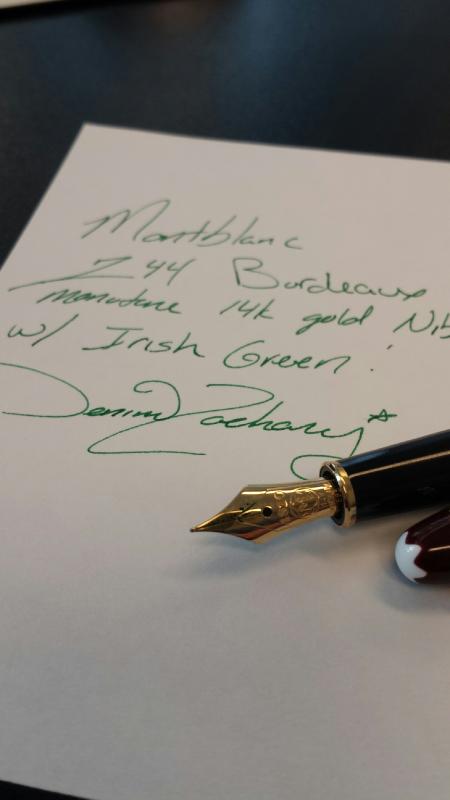 Montblanc
Z 44 Bordeaux
monotone 14k gold Nib
w/ Irish Green!
Denim Zachary